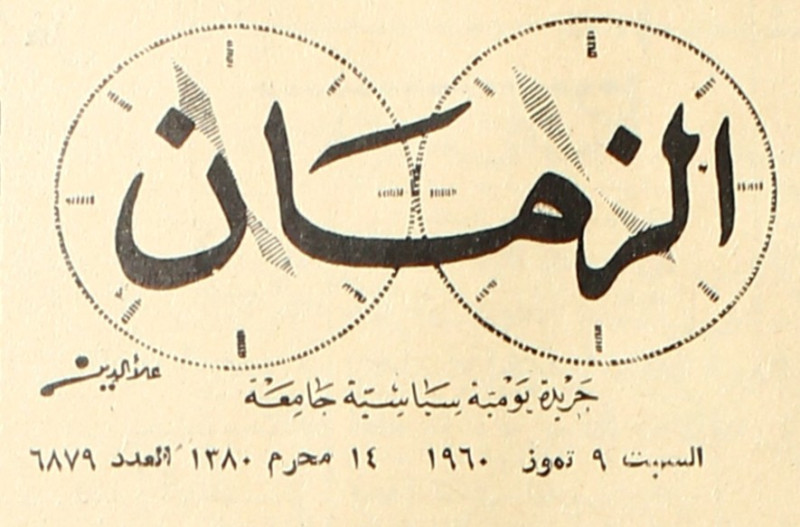 الزمان
علاءالدين
جريدة يومية سياسية جامعة
السبت ٩ تموز ١٩٦٠ ١٤ محرم ١٣٨٠ العدد ٦٨٧٩